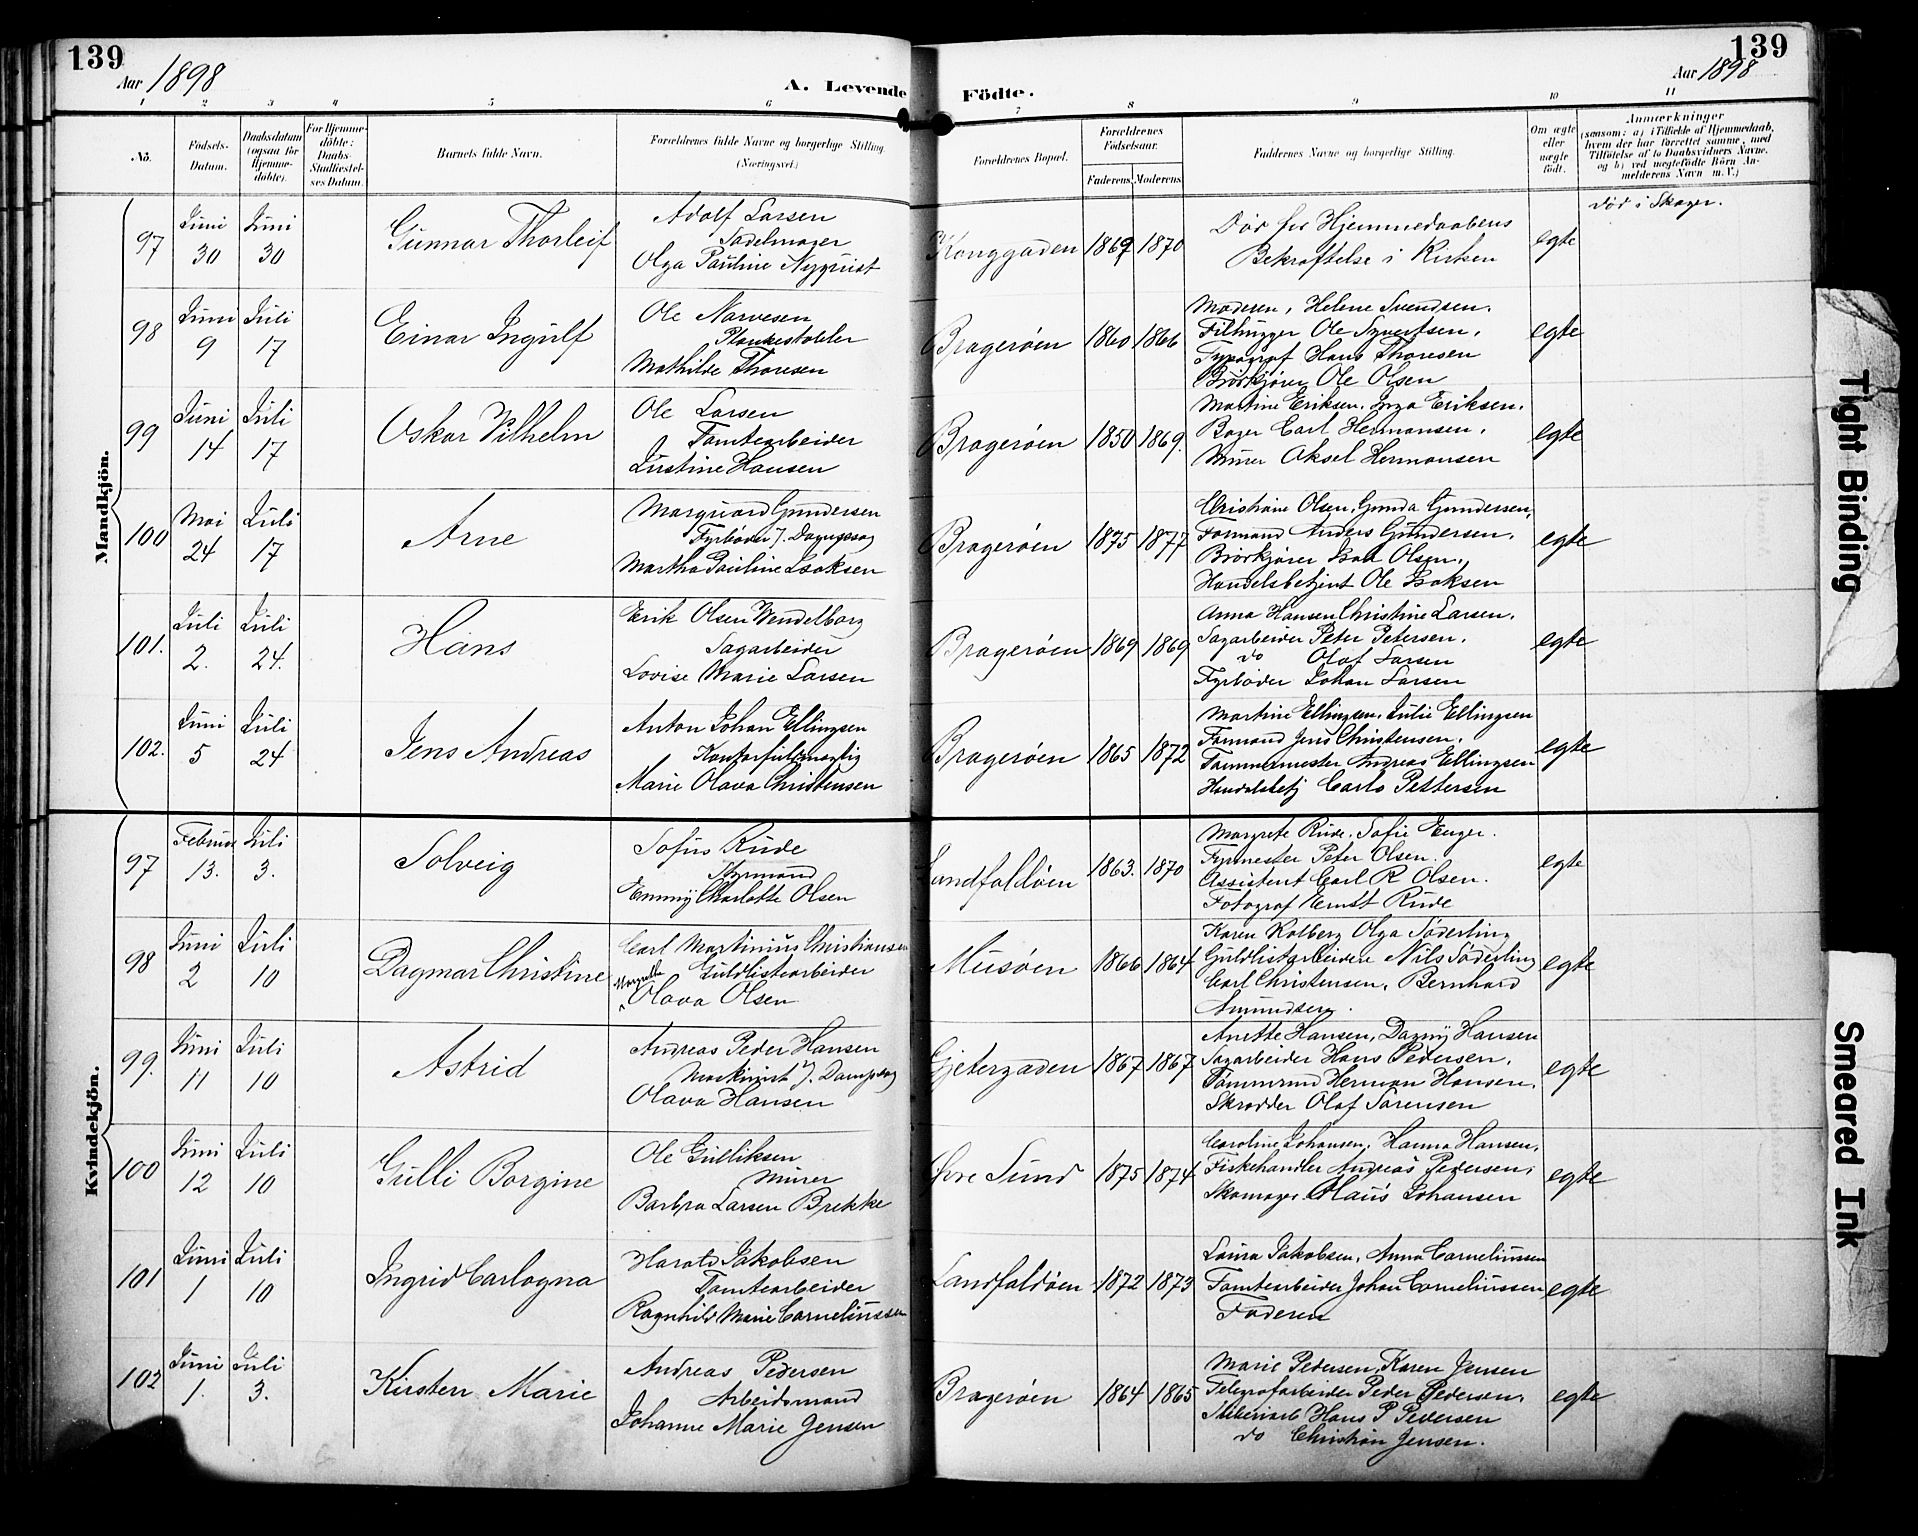 139
Aar 1898
A. Levende
1 2 3 4 5 6
No.
Fødsels-Datum.
Daabsdatum (ogsaa for Hjemme-døbte).
For Hjemme-døbte: Daabs-Stadfæstel-ses Datum.
Barnets fulde Navn.
Forældrenes fulde Navne og borgerlige Stilling (Næringsvei.)
Mandkjön.
97 Juni 30 Juni 30 Gunnar Thorleif
Adolf Larsen
Sadelmager
Olga Pauline Nyquist
98 Juni 9 Juli 17 Einar Ingulf
Ole Narvesen
Plankestabler
Mathilde Thoresen
99 Juni 14 Juli 17 Oskar Vilhelm
Ole Larsen
Tomtearbeider
Justine Hansen
100 Mai 24 Juli 17 Arne
Marquard Gundersen
Fyrbøder
Martha Pauline Isaksen
101. Juli 2. Juli 24. Hans
Erik Olsen Wendelborg
Sagarbeider
Lovise Marie Larsen
102. Juni 5 Juli 24 Jens Andreas
Anton Johan Ellingsen
Kontorfuldmægtig
Marie Olava Christensen
Kvindekjön.
97 Februar 13. Juli 3. Solveig
Sofus Rude
Styrmand
Emmy Charlotte Olsen
98 Juni 2 Juli 10 Dagmar Christine
Carl Martinius Christiansen
Guldlistearbeider
Olava Olsen
99. Juni 11 Juli 10 Astrid
Andreas Peder Hansen
Maskinist v/. Dampsag
Olava Hansen
100 Juni 12 Juli 10 Gulli Borgine
Ole Gulliksen
Murer
Barbra Larsen Brekke
101 Juni 1 Juli 10 Ingrid Carlogna
Harald Jakobsen
Tomtearbeider
Ragnhild Marie Corneliussen
102 Juni 1. Juli 3. Kirsten Marie
Andreas Pedersen
Arbeidsmand
Johanne Marie Jensen
139
Aar 1898
Födte.
7 8 9 10 11
Forældrenes Bopæl.
Forældrenes Fødselsaar.
Faderens. Moderens.
Faddernes Navne og borgerlige Stilling.
Om ægte eller uægte født.
Anmærkninger
(saasom: a) i Tilfælde af Hjemmedaab, hvem der har forrettet samme, med Tilføielse af to Daabsvidners Navne, og b) ved uægtefødte Børn Anmelderens Navn m. V.)
Konggaden 1869 1870
Død før Hjemmedaabens
Bekræftelse i Kirken
egte
død i Skoger.
Bragerøen 1860 1866
Moderen, Helene Svendsen.
Filhugger Ole Syvertsen,
Typograf Hans Thoresen
Ole Olsen
egte
Bragerøen 1850 1869.
Martine Eriksen, Inga Eriksen.
Bager Carl Hermansen,
Murer Aksel Hermansen
egte
Bragerøen 1875 1877
Christiane Olsen, Gunda Gundersen,
Formand Anders Gundersen,
Isak Olsen,
Handelsbetjent Ole Isaksen
egte
Bragerøen 1869 1869
Anna Hansen Christine Larsen.
Sagarbeider Peter Petersen.
do Olaf Larsen
Fyrbøder Johan Larsen
egte
Bragerøen 1865 1872
Martine Ellingsen, Julie Ellingsen
Formand Jens Christensen.
Tømmermester Andreas Ellingsen
Handelsbetj Carlo Pettersen
egte
Landfaldøen 1863. 1870
Margrete Rude. Sofie Enger.
Fyrmester Peter Olsen.
Assistent Carl R Olsen.
Fotograf Ernst Rude
egte
Musøen 1866 1864
Karen Kolberg Olga Søderling
Guldlistarbeidere Nils Søderling
Carl Christensen, Bernhard
Amundsen.
egte
Gjetergaden 1867 1867
Anette Hansen, Dagny Hansen
Sagarbeider Hans Pedersen,
Tømmermd Herman Hansen,
Skrædder Olaf Sørensen
egte
Øvre Sund 1875 1874
Caroline Johansen, Hanna Hansen,
Fiskehandler Andreas Pedersen,
Skomager Olaus Johansen
egte
Landfaldøen 1872 1873
Laura Jakobsen, Anna Corneliussen
Tomtearbeider Johan Corneliussen
Faderen
egte
Bragerøen 1864 1865
Marie Pedersen, Karen Jensen
Telegrafarbeider Peder Pedersen,
Hans P Pedersen
do Christian Jensen.
egte
Tight Binding
Smeared Ink